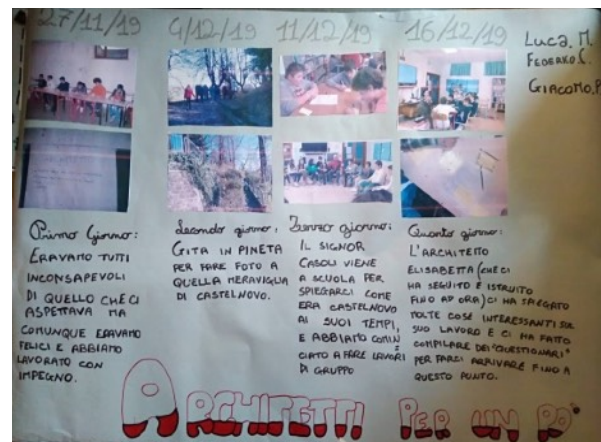 27/11/19
4/12/19
11/12/19
16/12/19
LUCA. M.
FEDERICO.C.
GIACOMO.P.
Primo Giorno:
ERAVAMO TUTTI
INCONSAPEVOLI
DI QUELLO CHE CI
ASPETTAVA MA
COMUNQUE ERAVAMO
FELICI E ABBIAMO
LAVORATO CON
IMPEGNO.
Secondo giorno:
GITA IN PINETA
PER FARE FOTO A
QUELLA MERAVIGLIA
DI CASTELNOVO.
Terzo giorno:
IL SIGNOR
CASOLI VIENE
A SCUOLA PER
SPIEGARCI COME
ERA CASTELNOVO
AI SUOI TEMPI,
E ABBIAMO COMIN
CIATO A FARE LAVORI
DI GRUPPO
Quarto giorno:
L'ARCHITETTO
ELISABETTA (CHE CI
HA SEGUITO E ISTRUITO
FINO AD ORA) CI HA SPIEGATO
MOLTE COSE INTERESSANTI SUL
SUO LAVORO E CI HA FATTO
COMPILARE DEI "QUESTIONARI"
PER FARCI ARRIVARE FINO A
QUESTO PUNTO.
ARCHITETTI PER UN PO'